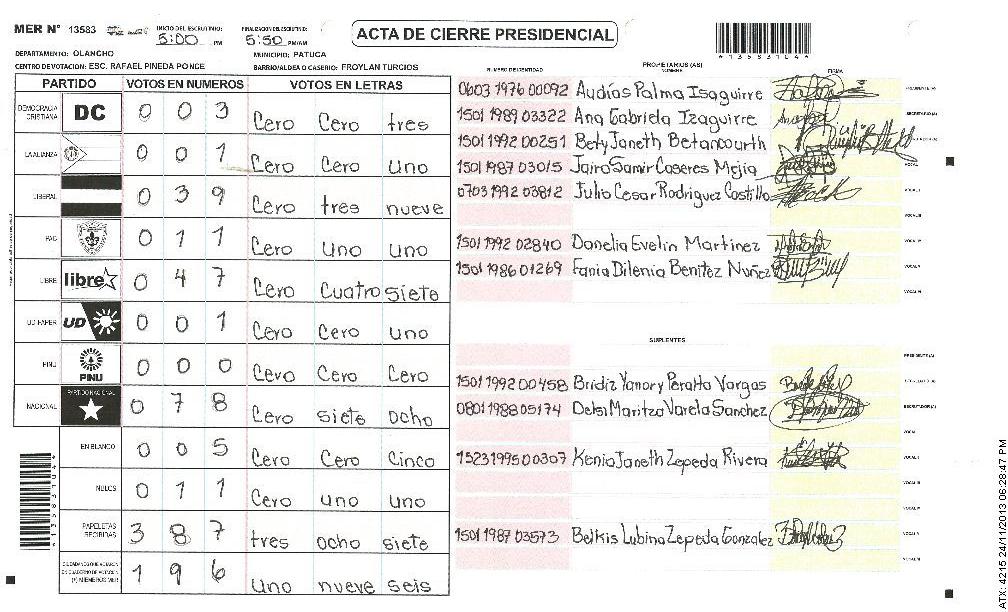 MER N° 13583
INICIO DEL ESCRUTINIO: 5:00 PM
FINALIZACION DEL ESCRUTINIO: 5:50 PM/AM
ACTA DE CIERRE PRESIDENCIAL
*13583104*
DEPARTAMENTO: OLANCHO
MUNICIPIO: PATUCA
CENTRO DE VOTACION: ESC. RAFAEL PINEDA PONCE
BARRIO/ALDEA O CASERIO: FROYLAN TURCIOS
PARTIDO VOTOS EN NUMEROS VOTOS EN LETRAS
DEMOCRACIA CRISTIANA DC 0 0 3 Cero Cero tres
LA ALIANZA 0 0 1 Cero Cero uno
LIBERAL 0 3 9 Cero tres nueve
PAC 0 1 1 Cero uno uno
LIBRE libre 0 4 7 Cero Cuatro siete
UD FAPER UD 0 0 1 Cero Cero uno
PINU PINU 0 0 0 Cero Cero Cero
NACIONAL PARTIDO NACIONAL 0 7 8 Cero siete ocho
EN BLANCO 0 0 5 Cero Cero Cinco
NULOS 0 1 1 Cero uno uno
PAPELETAS RECIBIDAS 3 8 7 tres ocho siete
CIUDADANOS QUE VOTARON EN CUADERNO DE VOTACION (+) MIEMBROS MER 1 9 6 Uno nueve seis
*13583104*
NUMERO DE IDENTIDAD PROPIETARIOS (AS) NOMBRE FIRMA
0603 1976 00092 Audías Palma Isaguirre PRESIDENTE (A)
1501 1989 03322 Ana Gabriela Izaguirre SECRETARIO (A)
1501 1992 00251 Bety Janeth Betancourth
1501 1987 03015 Jairo Samir Caseres Mejia VOCAL I
0703 1992 03812 Julio Cesar Rodriguez Costillo VOCAL II
VOCAL III
1501 1992 02840 Danelia Evelin Martinez VOCAL IV
1501 1986 01269 Fania Dilenia Benitez Nuñez VOCAL V
VOCAL VI
SUPLENTES
PRESIDENTE (A)
1501 1992 00458 Bridiz Yanory Peralta Vargas SECRETARIO (A)
0801 1988 05174 Delsi Maritza Varela Sanchez ESCRUTADOR (A)
VOCAL I
1523 1995 00307 Kenia Janeth Zepeda Rivera VOCAL II
VOCAL III
VOCAL IV
1501 1987 03573 Belkis Lubina Zepeda Gonzalez VOCAL V
VOCAL VI
ATX: 4215 24/11/2013 06:28:47 PM